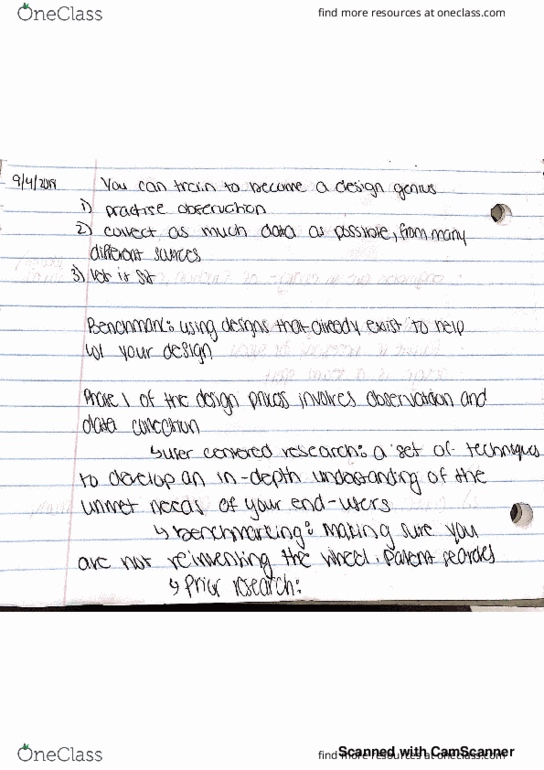 OneClass
find more resources at oneclass.com
9/4/2019 You can train to become a design genius
1) practise observation
2) collect as much data as possible, from many
different sources
3) let it sit
Benchmark: using designs that already exist to help
w/ your design
Phase 1 of the design process involves observation and
data collection
↳ user centered research: a set of techniques
to develop an in-depth understanding of the
unmet needs of your end-users
↳ benchmarking: making sure you
are not reinventing the wheel. Patent searches
↳ Prior research:
OneClass
find more resources at oneclass.com
Scanned with CamScanner